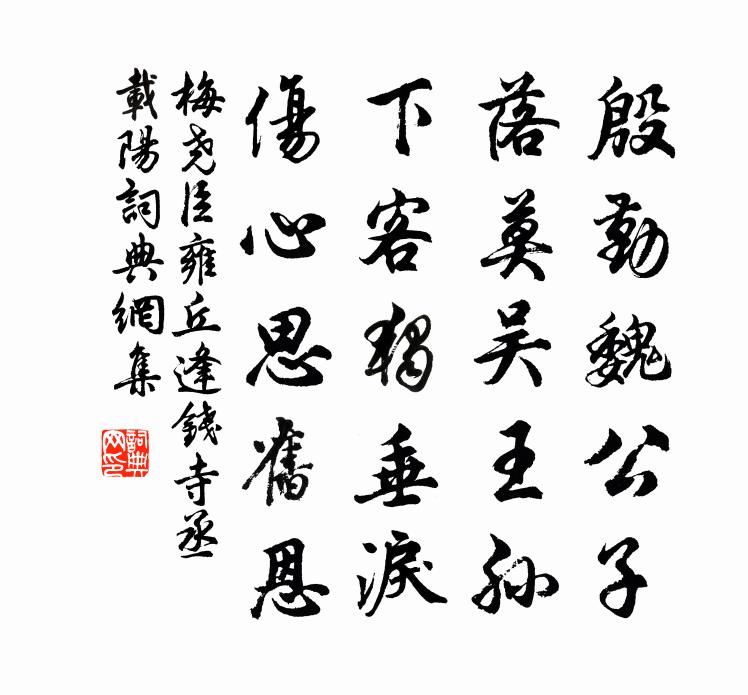 殷勤魏公子
落莫吴王孙
下客獨垂淚
傷心思舊恩
梅尧臣雍丘逢錢寺丞
載陽詞典網集
詞典網印